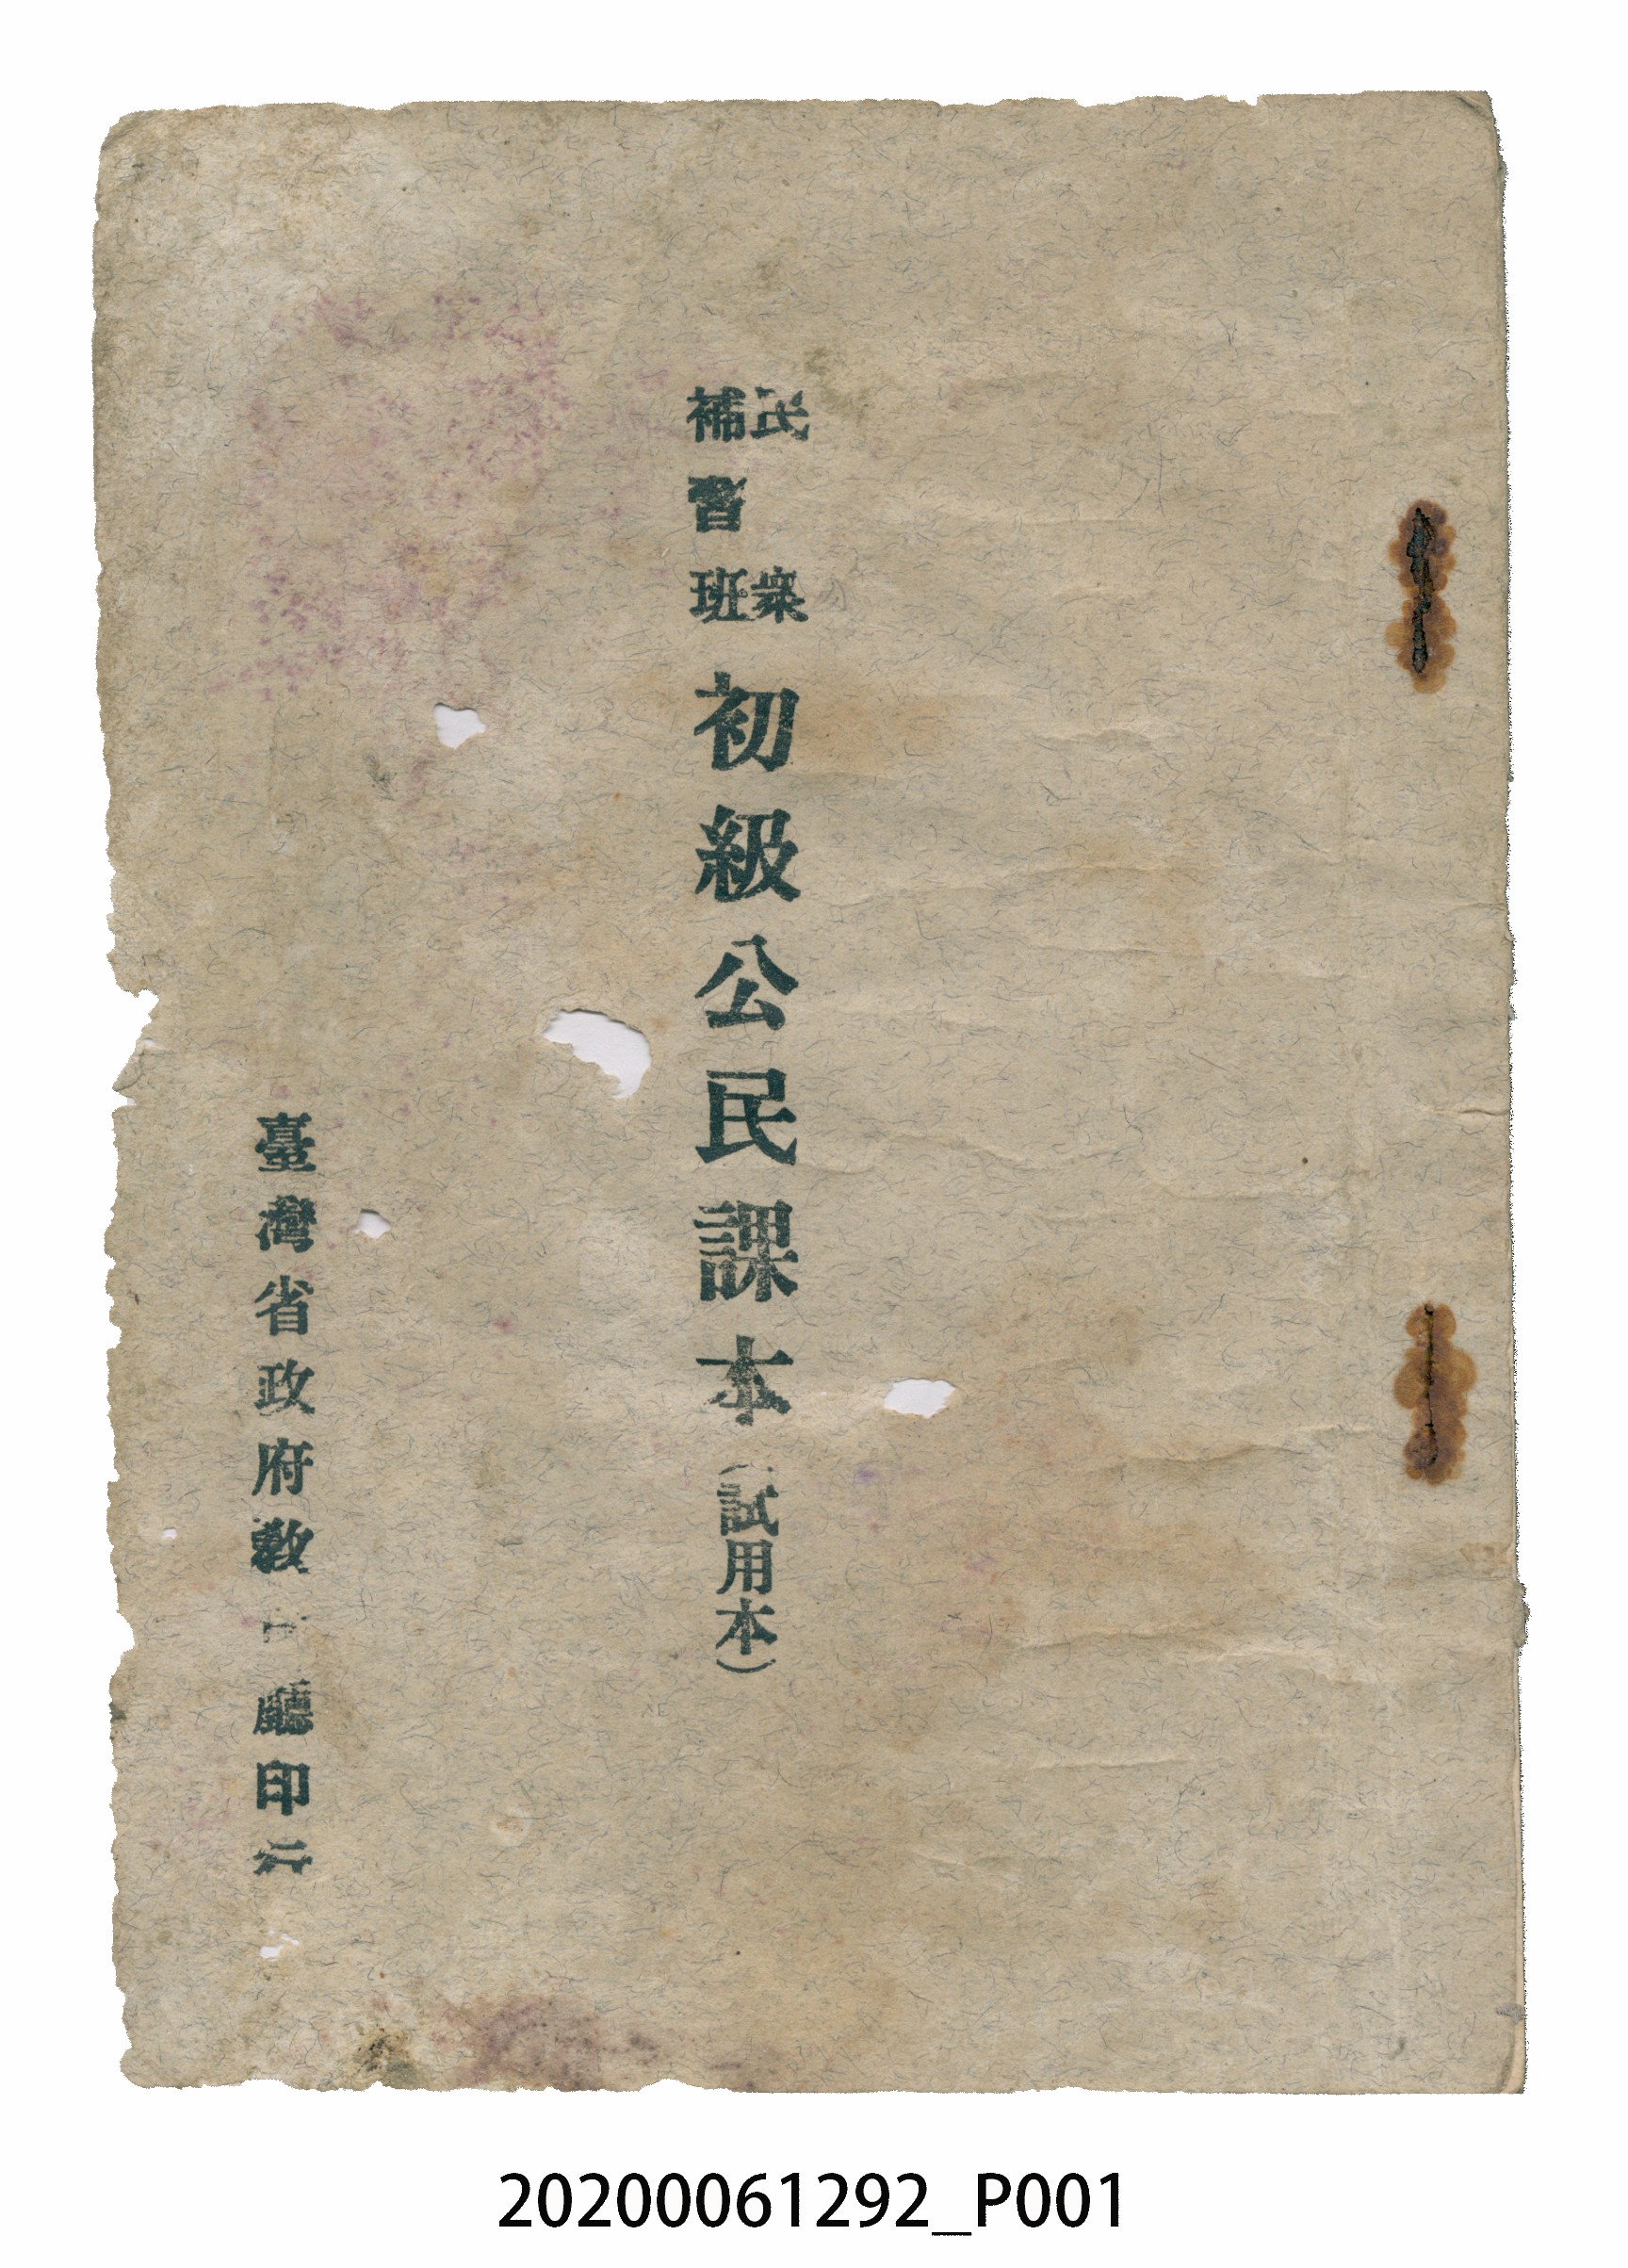 民衆
補習班
初級公民課本(試用本)
臺灣省政府教 廳印
20200061292_P001